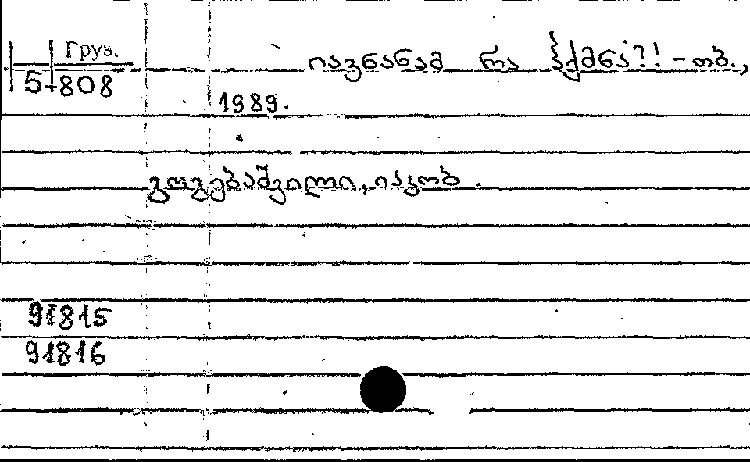 Груз.
5-808
იავნანამ რა ჰქმნა?! - თბ.,
1989.
გოგებაშვილი, იაკობ.
91815
91816